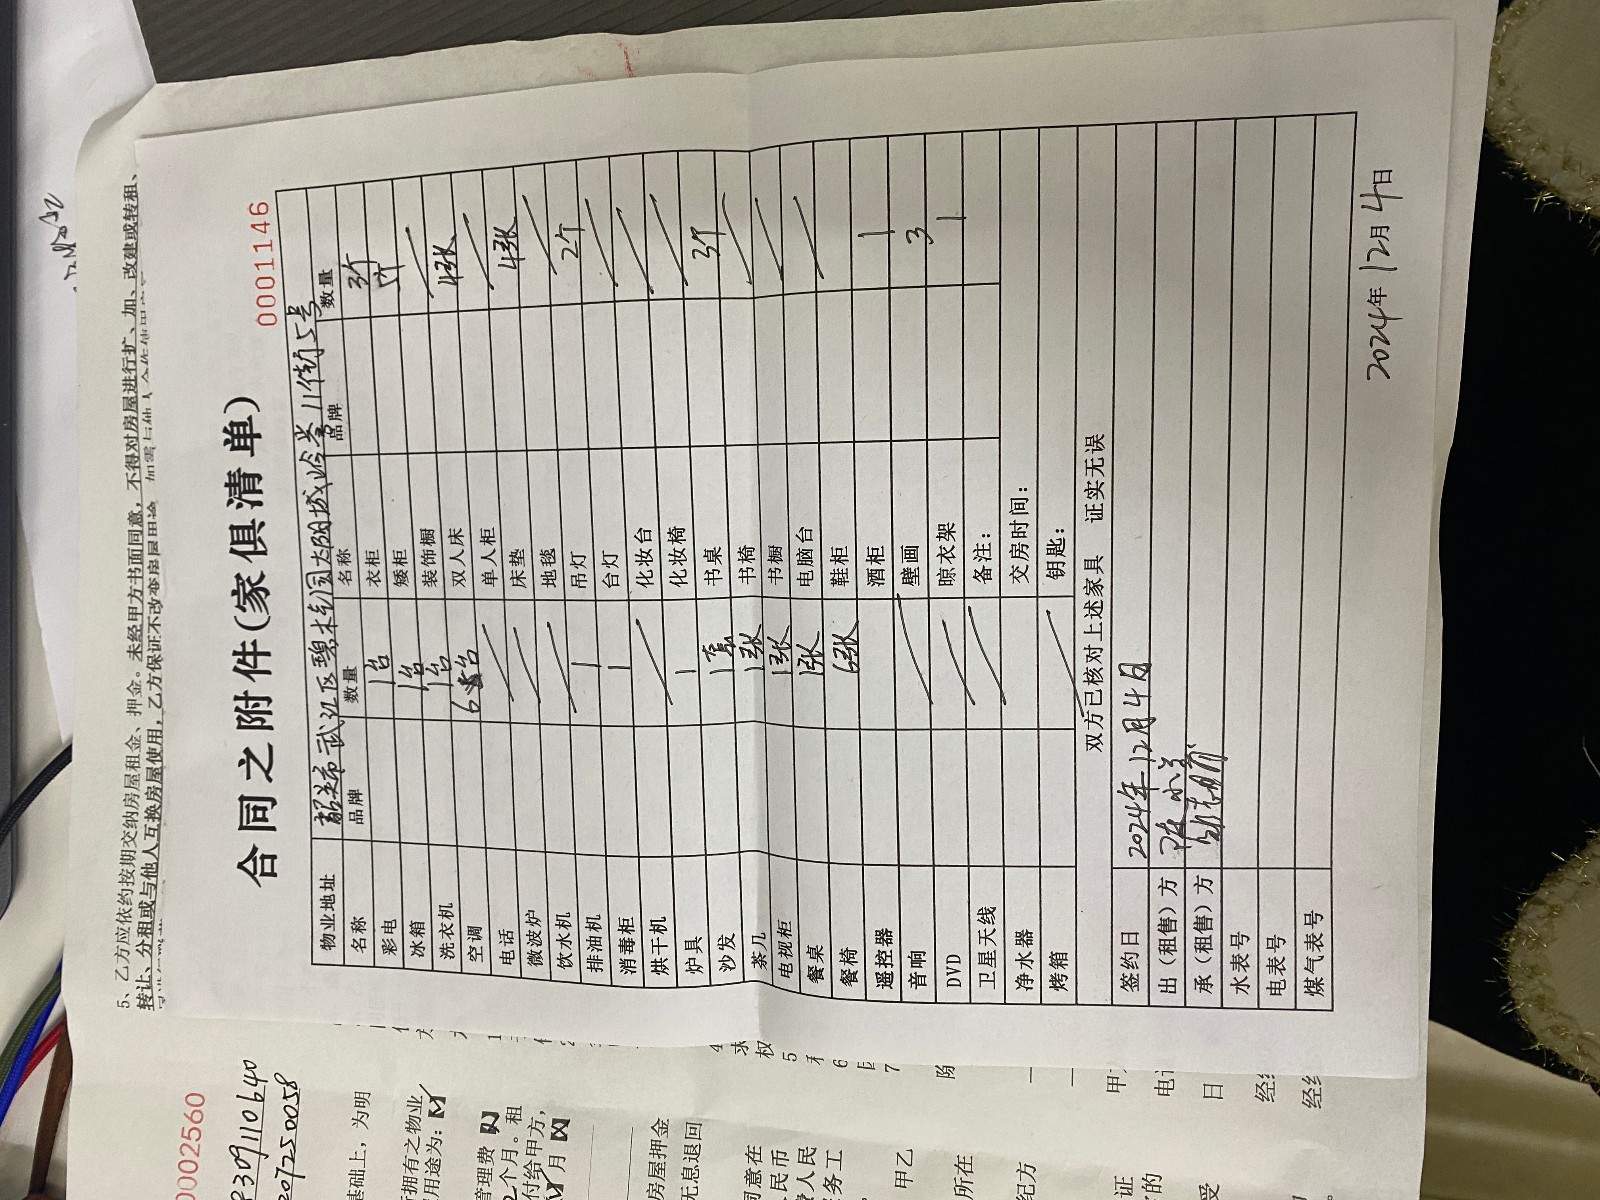 5、乙方应依约按期交纳房屋租金、押金。未经甲方书面同意，不得对房屋进行扩、加、改建或转租、
转让、分租或与他人互换房屋使用，乙方保证不改变房屋用途
0001146
合同之附件(家俱清单)
物业地址 韶关市武江区碧桂园太阳城岭峯川街5号
名称 品牌 数量 名称 品牌 数量
彩电 1台 衣柜 3个
冰箱 1台 矮柜
洗衣机 1台 装饰橱
空调 6台 双人床 4张
电话 单人柜
微波炉 床垫 4张
饮水机 地毯
排油机 1 吊灯 2个
消毒柜 1 台灯
烘干机 化妆台
炉具 1 化妆椅
沙发 1套 书桌 3个
茶几 1张 书椅
电视柜 1张 书橱
餐桌 1张 电脑台
餐椅 6张 鞋柜
遥控器 酒柜 1
音响 壁画 3
DVD 晾衣架 1
卫星天线 备注：
净水器 交房时间：
烤箱 钥匙：
双方已核对上述家具 证实无误
签约日 2024年12月4日
出（租售）方
承（租售）方
水表号
电表号
煤气表号
2024年12月4日
0002560
基础上，为明
拥有之物业
用途为：
管理费
2个月。租
付给甲方，
月
房屋押金
无息退回
同意在
民币
人民
务工
甲乙
所在
纪方
证
的
受